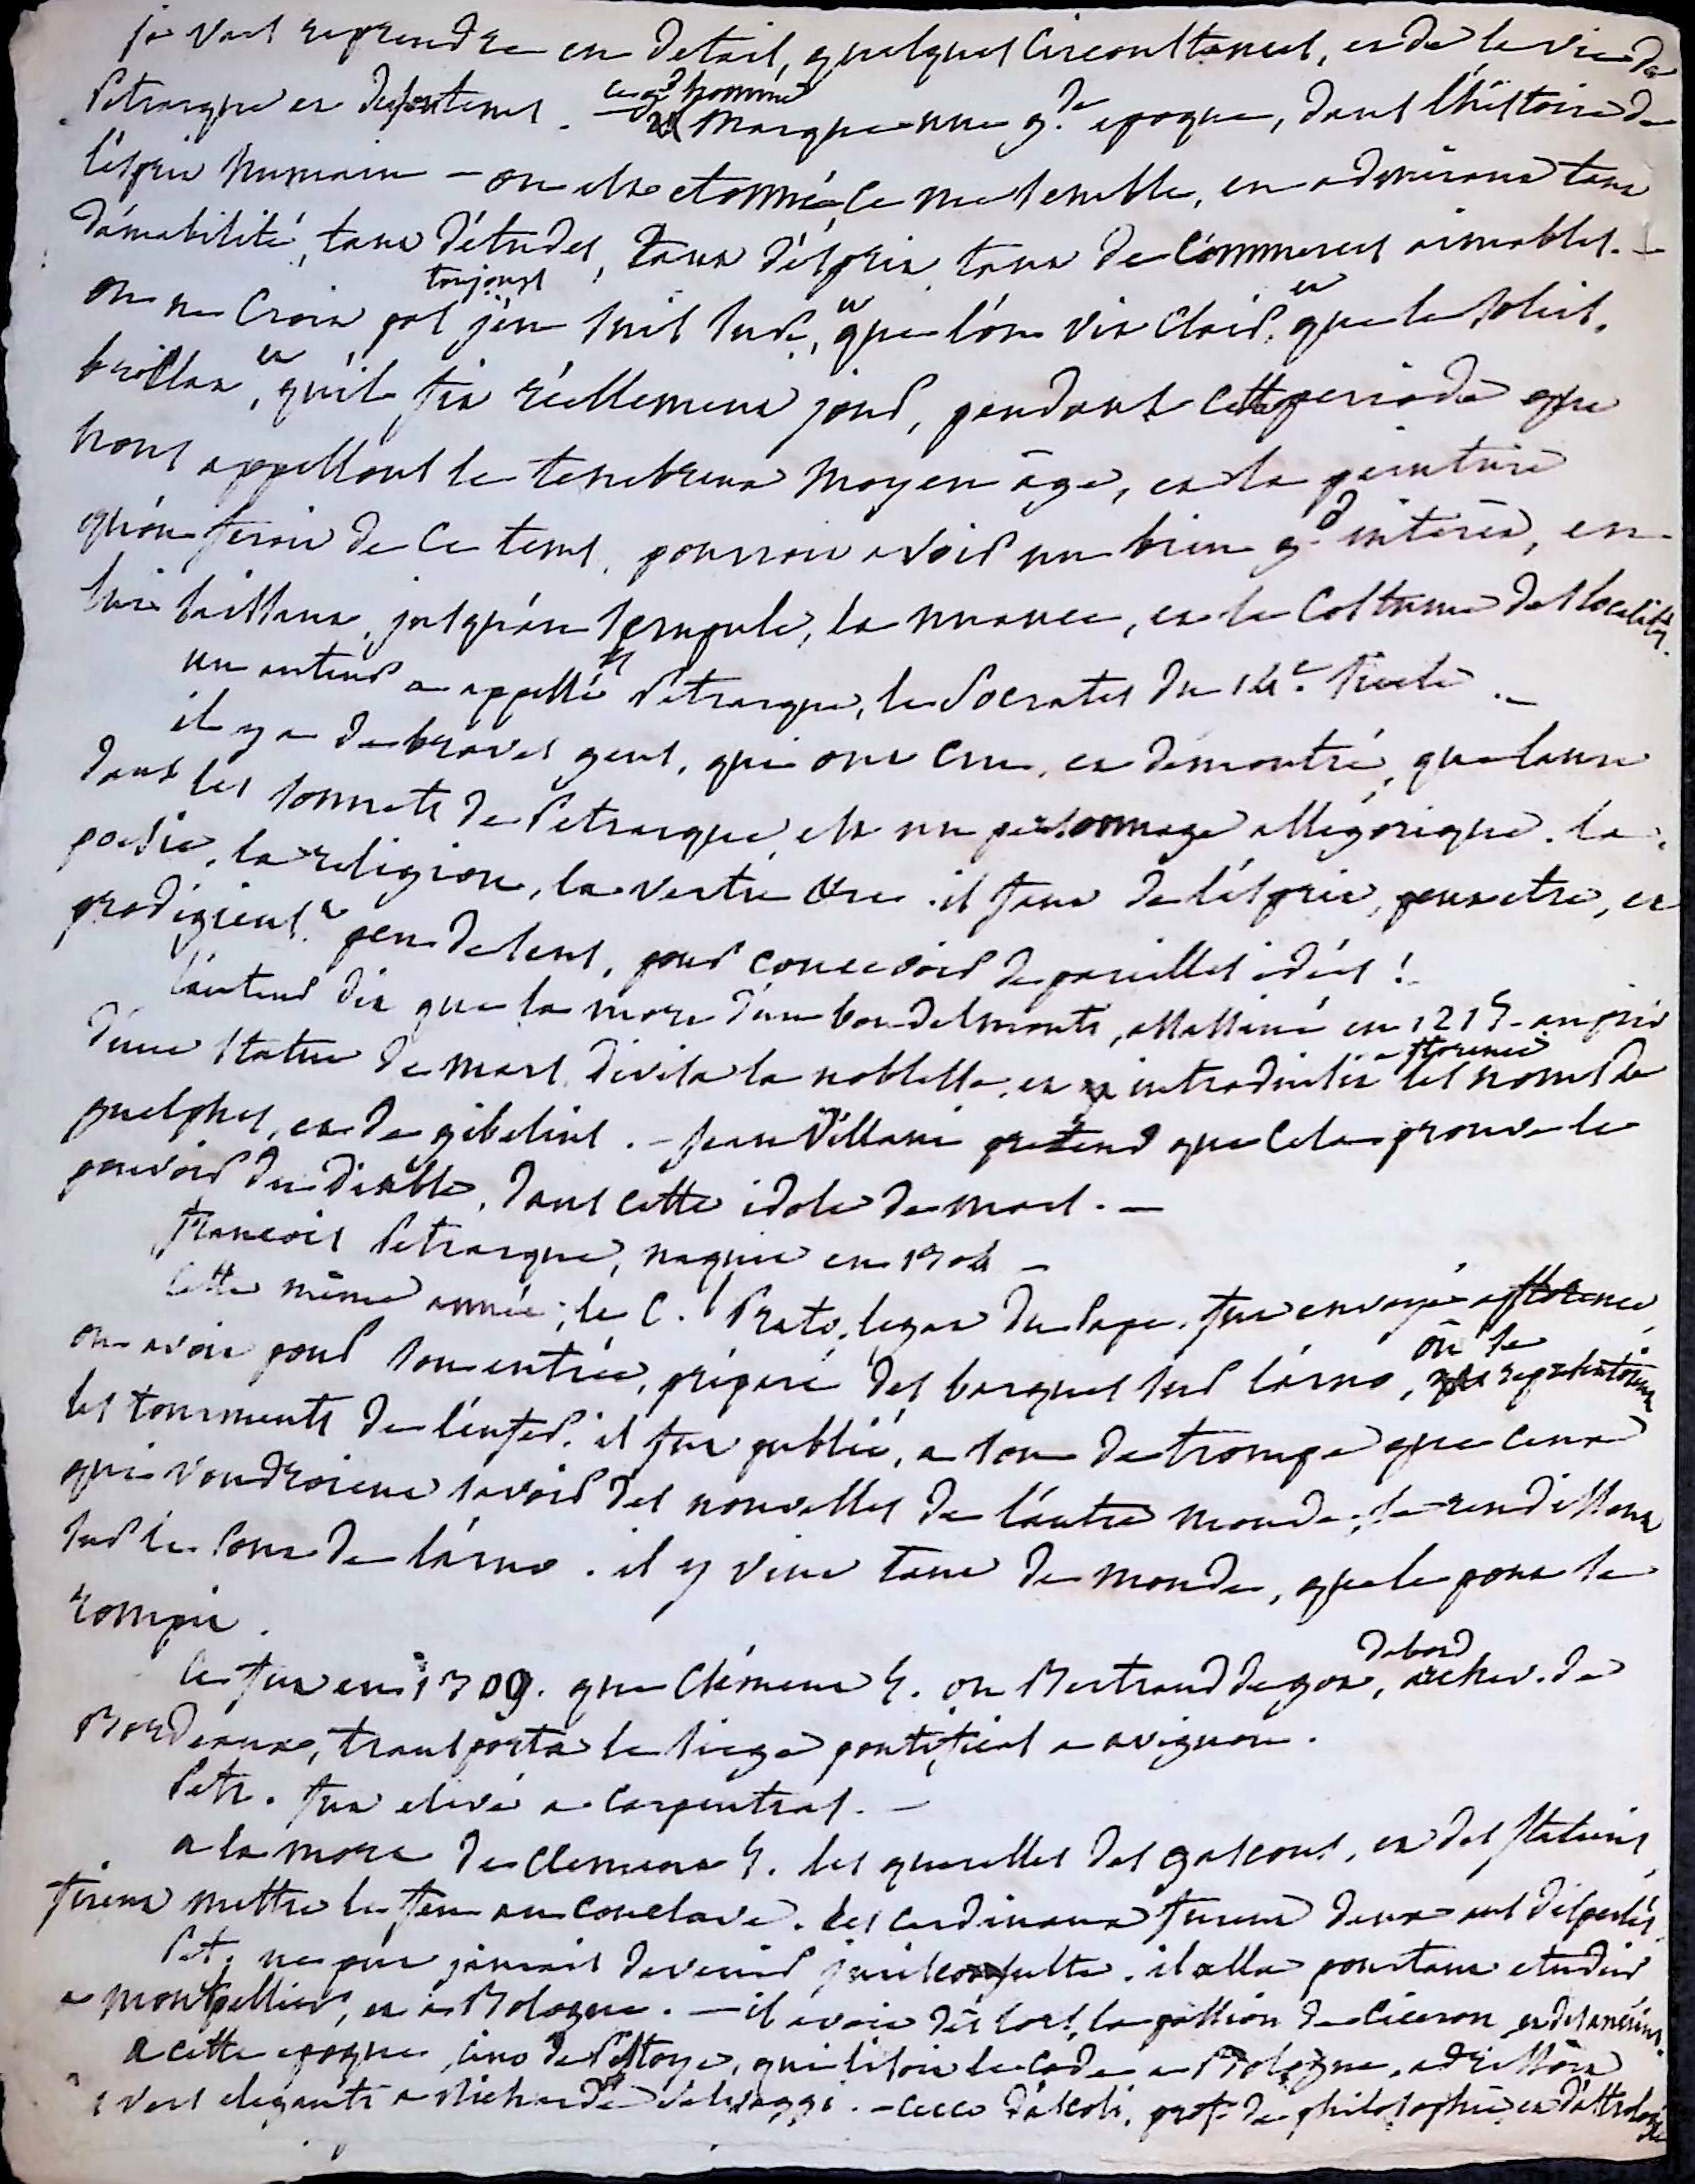 je vais reprendre en detail, quelques circonstances, et de la vie de
Petrarque et de son tems. - ce gd homme marque une gde epoque, dans l'histoire de
l'esprit humain - on est etonné, ce me semble, en admirant tant
d'amabilité, tant d'études, tant d'ésprit, tant de commerces aimables. -
on ne croit pas toujours j'en suis sure, et que l'on vit clair, et que le soleil,
brillat, et qu'il fit réellement jour, pendant cette periode que
nous appellons le tenebreux moyen âge, et la peinture
qu'on feroit de ce tems, pourroit avoir un bien gd intérêt, en
lui laissant, jusqu'au scrupule, la nuance, et le costume des localités.
un auteur a appellé Petrarque, le Socrates du 14e. siecle. -
il y a de braves gens, qui ont cru, et démontré, que laure
dans les sonnets de Petrarque, est un personnage allégorique. la
poesie, la religion, la vertu &c. il faut de l'ésprit, peut etre, et
prodigieust. peu de sens, pour concevoir de pareilles idées !
l'auteur dit que la mort d'un bondelmonte, assassiné en 1215 - au pié
d'une statue de mars, divisa la noblesse, et introduisit a florence les noms de
guelphes, et de gibelins. - Jean Villani pretend que cela prouve le
pouvoir du diable, dans cette idole de mars. -
François Petrarque, naquit en 1304 -
Cette même année, le C. Prato, legat du Pape, fut envoyé a florence,
on avoit pour son entrée, préparé des barques sur l'arno, où se representoient
les tourments de l'enfer. il fut publié, a son de trompe que ceux
qui voudroient savoir des nouvelles de l'autre monde, se rendissent
sur le pont de l'arno. il y vint tant de monde, que le pont se
rompit.
Ce fut en 1309. que Clément 5. ou Bertrand de got, dabord archev. de
Bordeaux, transporta le siege pontifical a avignon.
Petr. fut elevé a Carpentras. -
a la mort de clement 5. les querelles des gascons, et des Italiens,
firent mettre le feu au conclave. les cardinaux furent deux ans dispersés.
Pet. ne put jamais devenir jurisconsulte. il alla pourtant etudier
a montpellier, et a Bologne. - il avoit dès lors, la passion de Ciceron, et des anciens.
a cette epoque, cino de Pistoye, qui lisoit le code a Bologne, adressoit
vers elegants a Richarde Selvaggi. - cecco d'ascoli, prof. de philosophie et d'astrologie